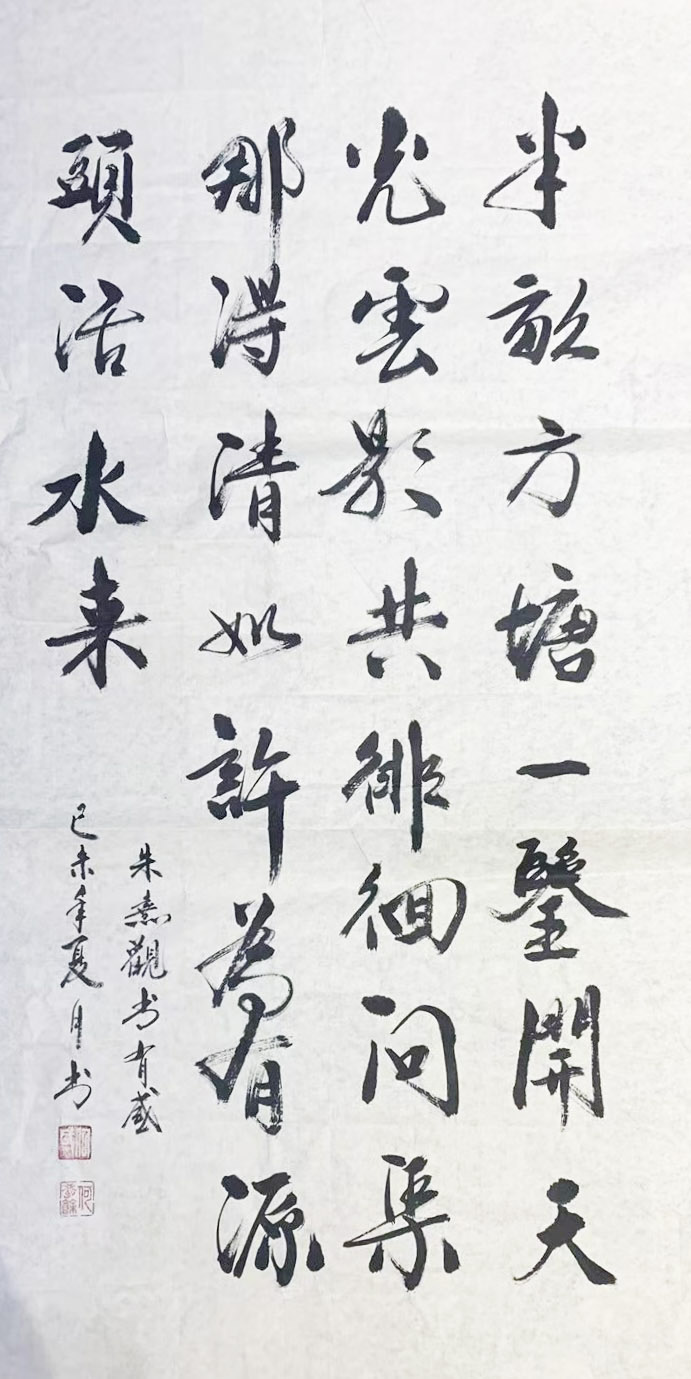 半畝方塘一鑒開天
光雲影共徘徊問渠
那得清如許為有源
頭活水來
朱熹觀书有感
己未年夏月书